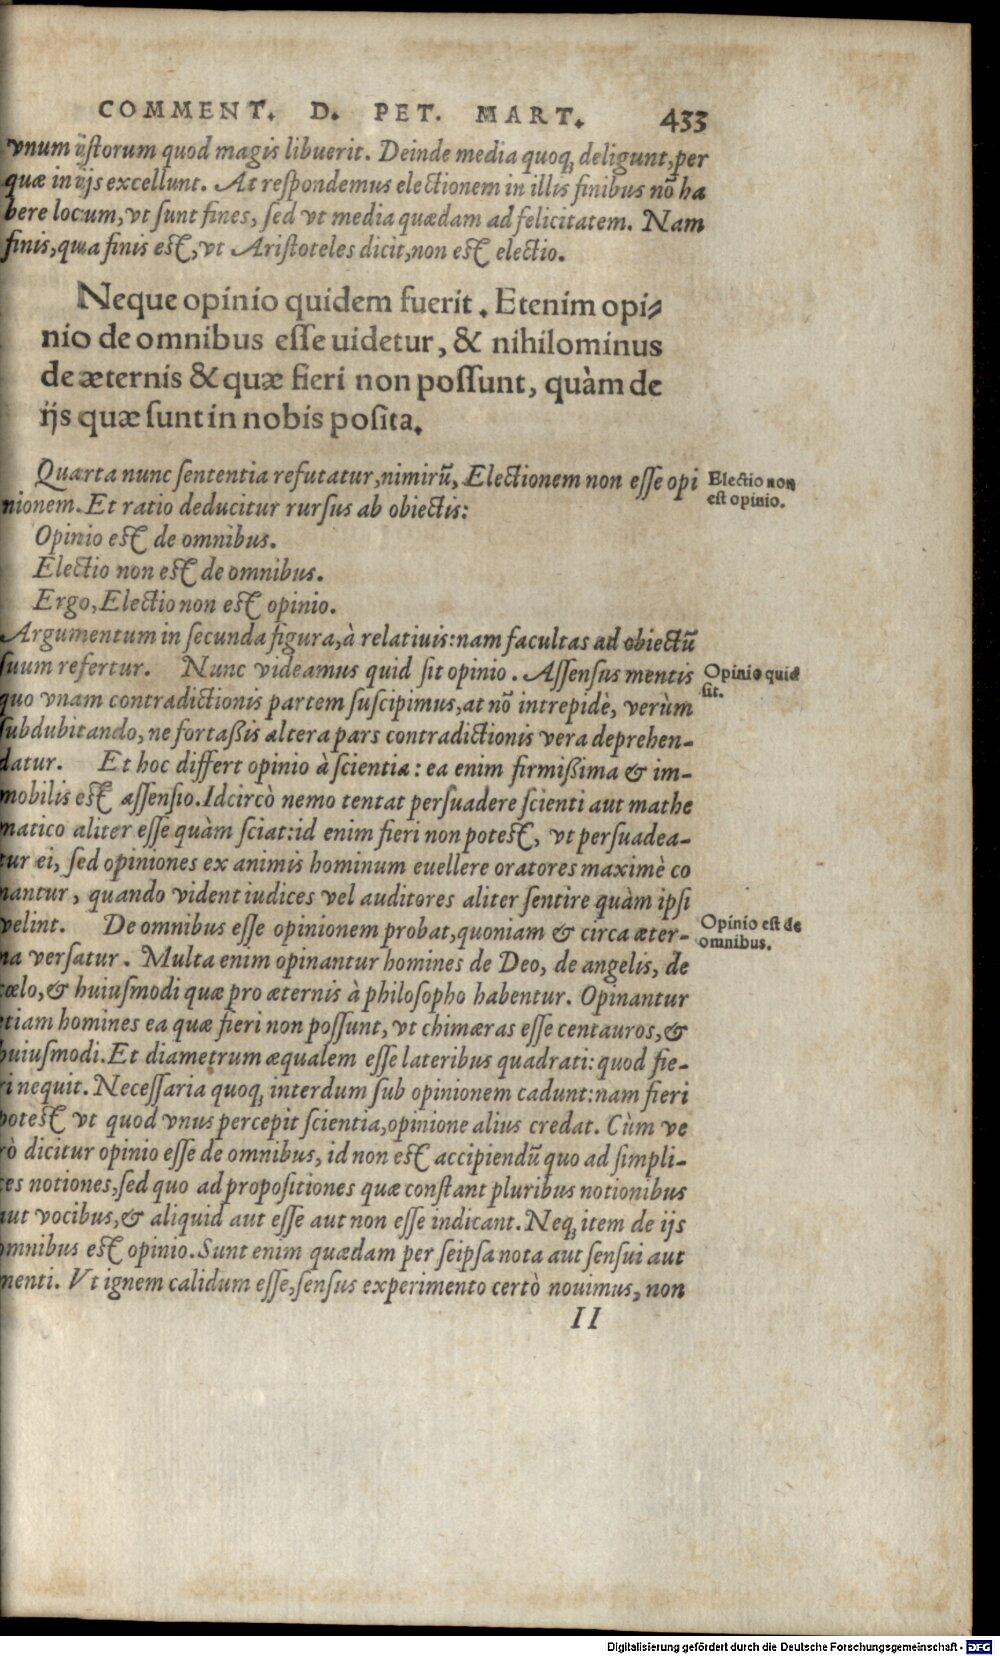 COMMENT. D. PET. MART. 433
vnum istorum quod magis libuerit. Deinde media quoq; deligunt, per
quæ in ijs excellunt. At respondemus electionem in illis finibus nō ha
bere locum, vt sunt fines, sed vt media quædam ad felicitatem. Nam
finis, qua finis est, vt Aristoteles dicit, non est electio.
Neque opinio quidem fuerit. Etenim opi-
nio de omnibus esse uidetur, & nihilominus
de æternis & quæ fieri non possunt, quàm de
ijs quæ sunt in nobis posita.
Quarta nunc sententia refutatur, nimirū, Electionem non esse opi
nionem. Et ratio deducitur rursus ab obiectis:
Electio non
est opinio.
Opinio est de omnibus.
Electio non est de omnibus.
Ergo, Electio non est opinio.
Argumentum in secunda figura, à relatiuis: nam facultas ad obiectū
suum refertur. Nunc videamus quid sit opinio. Assensus mentis
Opinio quid
sit.
quo vnam contradictionis partem suscipimus, at nō intrepidè, verùm
subdubitando, ne fortaßis altera pars contradictionis vera deprehen-
datur. Et hoc differt opinio à scientia: ea enim firmißima & im-
mobilis est assensio. Idcircò nemo tentat persuadere scienti aut mathe
matico aliter esse quàm sciat: id enim fieri non potest, vt persuadea-
tur ei, sed opiniones ex animis hominum euellere oratores maximè co
nantur, quando vident iudices vel auditores aliter sentire quàm ipsi
velint. De omnibus esse opinionem probat, quoniam & circa æter-
Opinio est de
omnibus.
na versatur. Multa enim opinantur homines de Deo, de angelis, de
cœlo, & huiusmodi quæ pro æternis à philosopho habentur. Opinantur
etiam homines ea quæ fieri non possunt, vt chimæras esse centauros, &
huiusmodi. Et diametrum æqualem esse lateribus quadrati: quod fie-
ri nequit. Necessaria quoq; interdum sub opinionem cadunt: nam fieri
potest vt quod vnus percepit scientia, opinione alius credat. Cùm ve
rò dicitur opinio esse de omnibus, id non est accipiendū quo ad simpli-
ces notiones, sed quo ad propositiones quæ constant pluribus notionibus
aut vocibus, & aliquid aut esse aut non esse indicant. Neq; item de ijs
omnibus est opinio. Sunt enim quædam per seipsa nota aut sensui aut
menti. Vt ignem calidum esse, sensus experimento certò nouimus, non
II
Digitalisierung gefördert durch die Deutsche Forschungsgemeinschaft - DFG